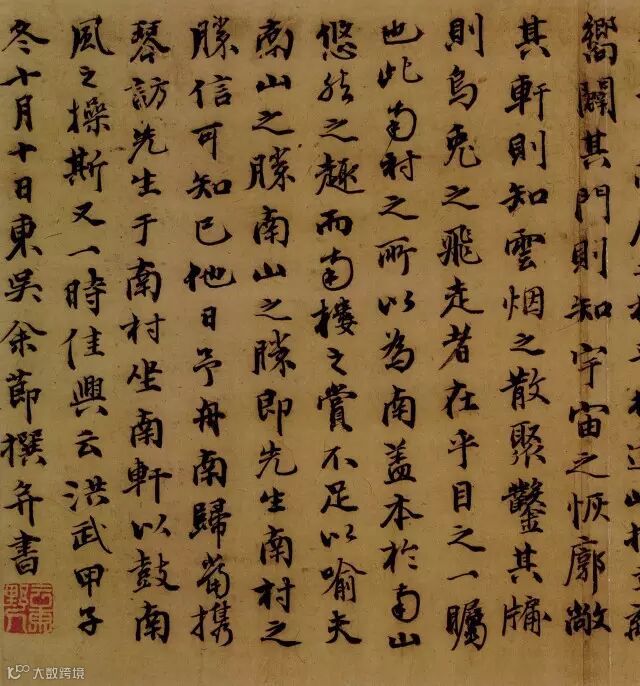 嚮闢其門則知宇宙之恢廓敞
其軒則知雲烟之散聚鑿其牖
則烏兔之飛走者在乎目之一矚
也此南村之所以為南蓋本於南山
悠然之趣而南樓之賞不足以喻夫
南山之勝南山之勝即先生南村之
勝信可知已他日予舟南歸當携
琴訪先生于南村坐南軒以鼓南
風之操斯又一時佳興云洪武甲子
冬十月十日東吳余節撰并書
大数跨境